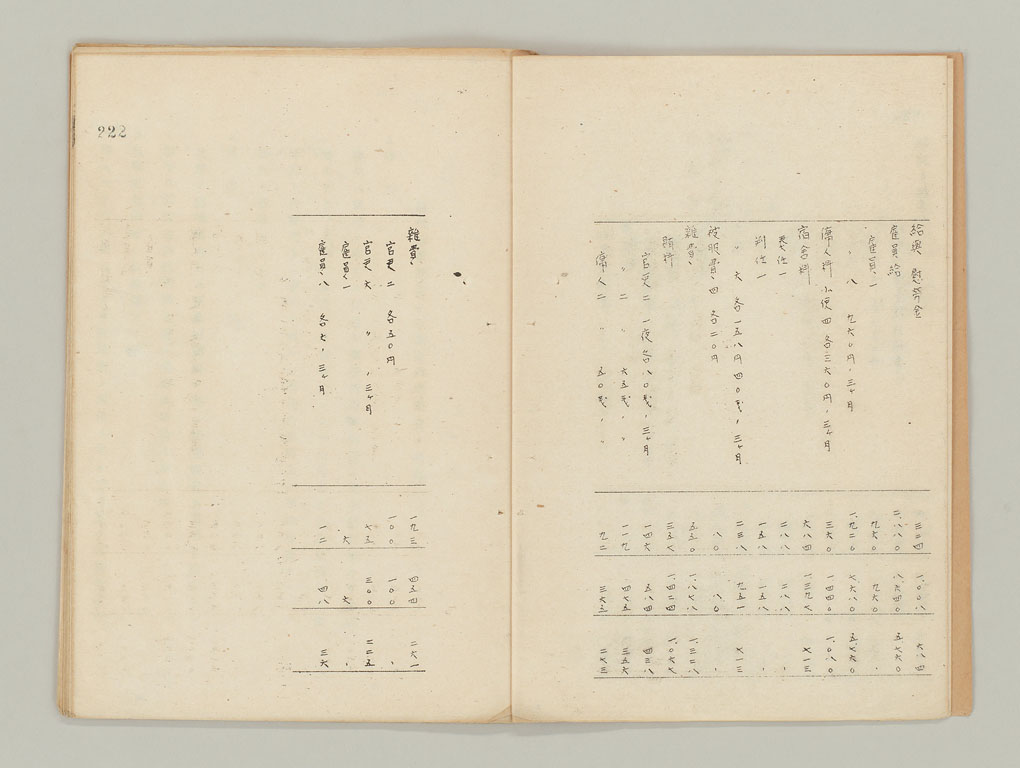 給與、慰勞金 三三四 一、〇〇八 六八四
雇員給 二、八八〇 八、六四〇 五、七六〇
雇員、一 九六〇 九六〇 〃
〃 八 九六〇円、三ヶ月 一、九二〇 七、六八〇 五、七六〇
傭人料 小使四 各三六〇円、三ヶ月 三六〇 一、四四〇 一、〇八〇
宿舍料 六八四 一、三九七 七一三
奏任一 二八八 二八八 〃
判任一 一五八 一五八 〃
〃 六 各一五八円四〇錢、三ヶ月 二三八 九五一 七一三
被服費、四 各二〇円 八〇 八〇 〃
雜費、 五五〇 一、八七八 一、三二八
賄料 三五七 一、四二四 一、〇六七
官吏二 一度各八〇錢、三ヶ月 一四六 五八四 四三八
〃 二 〃 六五錢、〃 一一九 四七五 三五六
傭人二 〃 五〇錢、〃 九二 三六五 二七三
222
雜費、 一九三 四五四 二六一
官吏二 各五〇円 一〇〇 一〇〇 〃
官吏六 〃 、三ヶ月 七五 三〇〇 二二五
雇員一 六 六 〃
雇員、八 各六、三ヶ月 一二 四八 三六